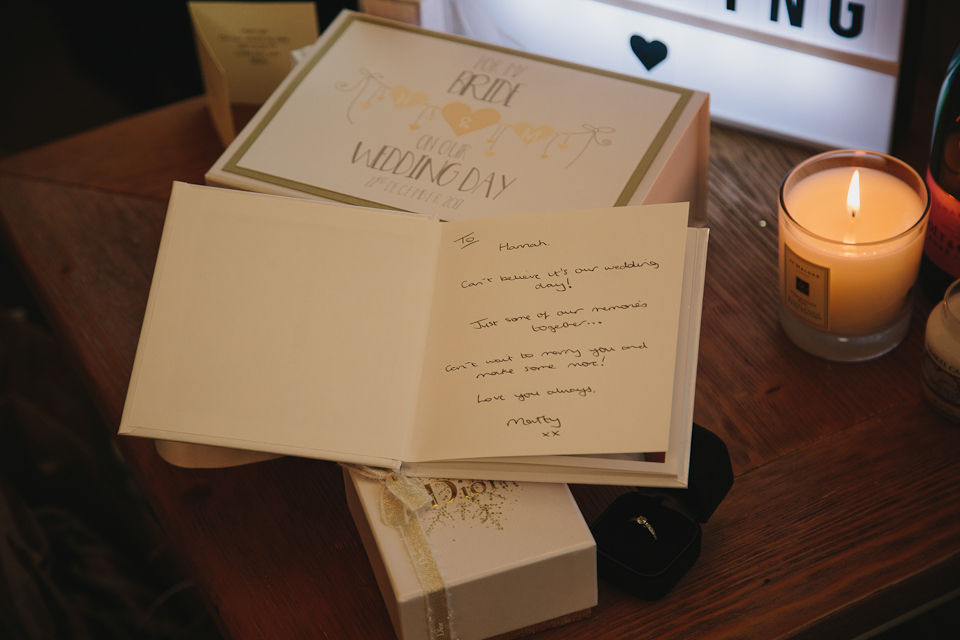 NG
FOR MY
BRIDE
&
ON OUR
WEDDING DAY
To Hannah.
Can't believe it's our wedding
day!
Just some of our memories
together...
Can't wait to marry you and
make some more!
Love you always,
Matty
xx
Dior